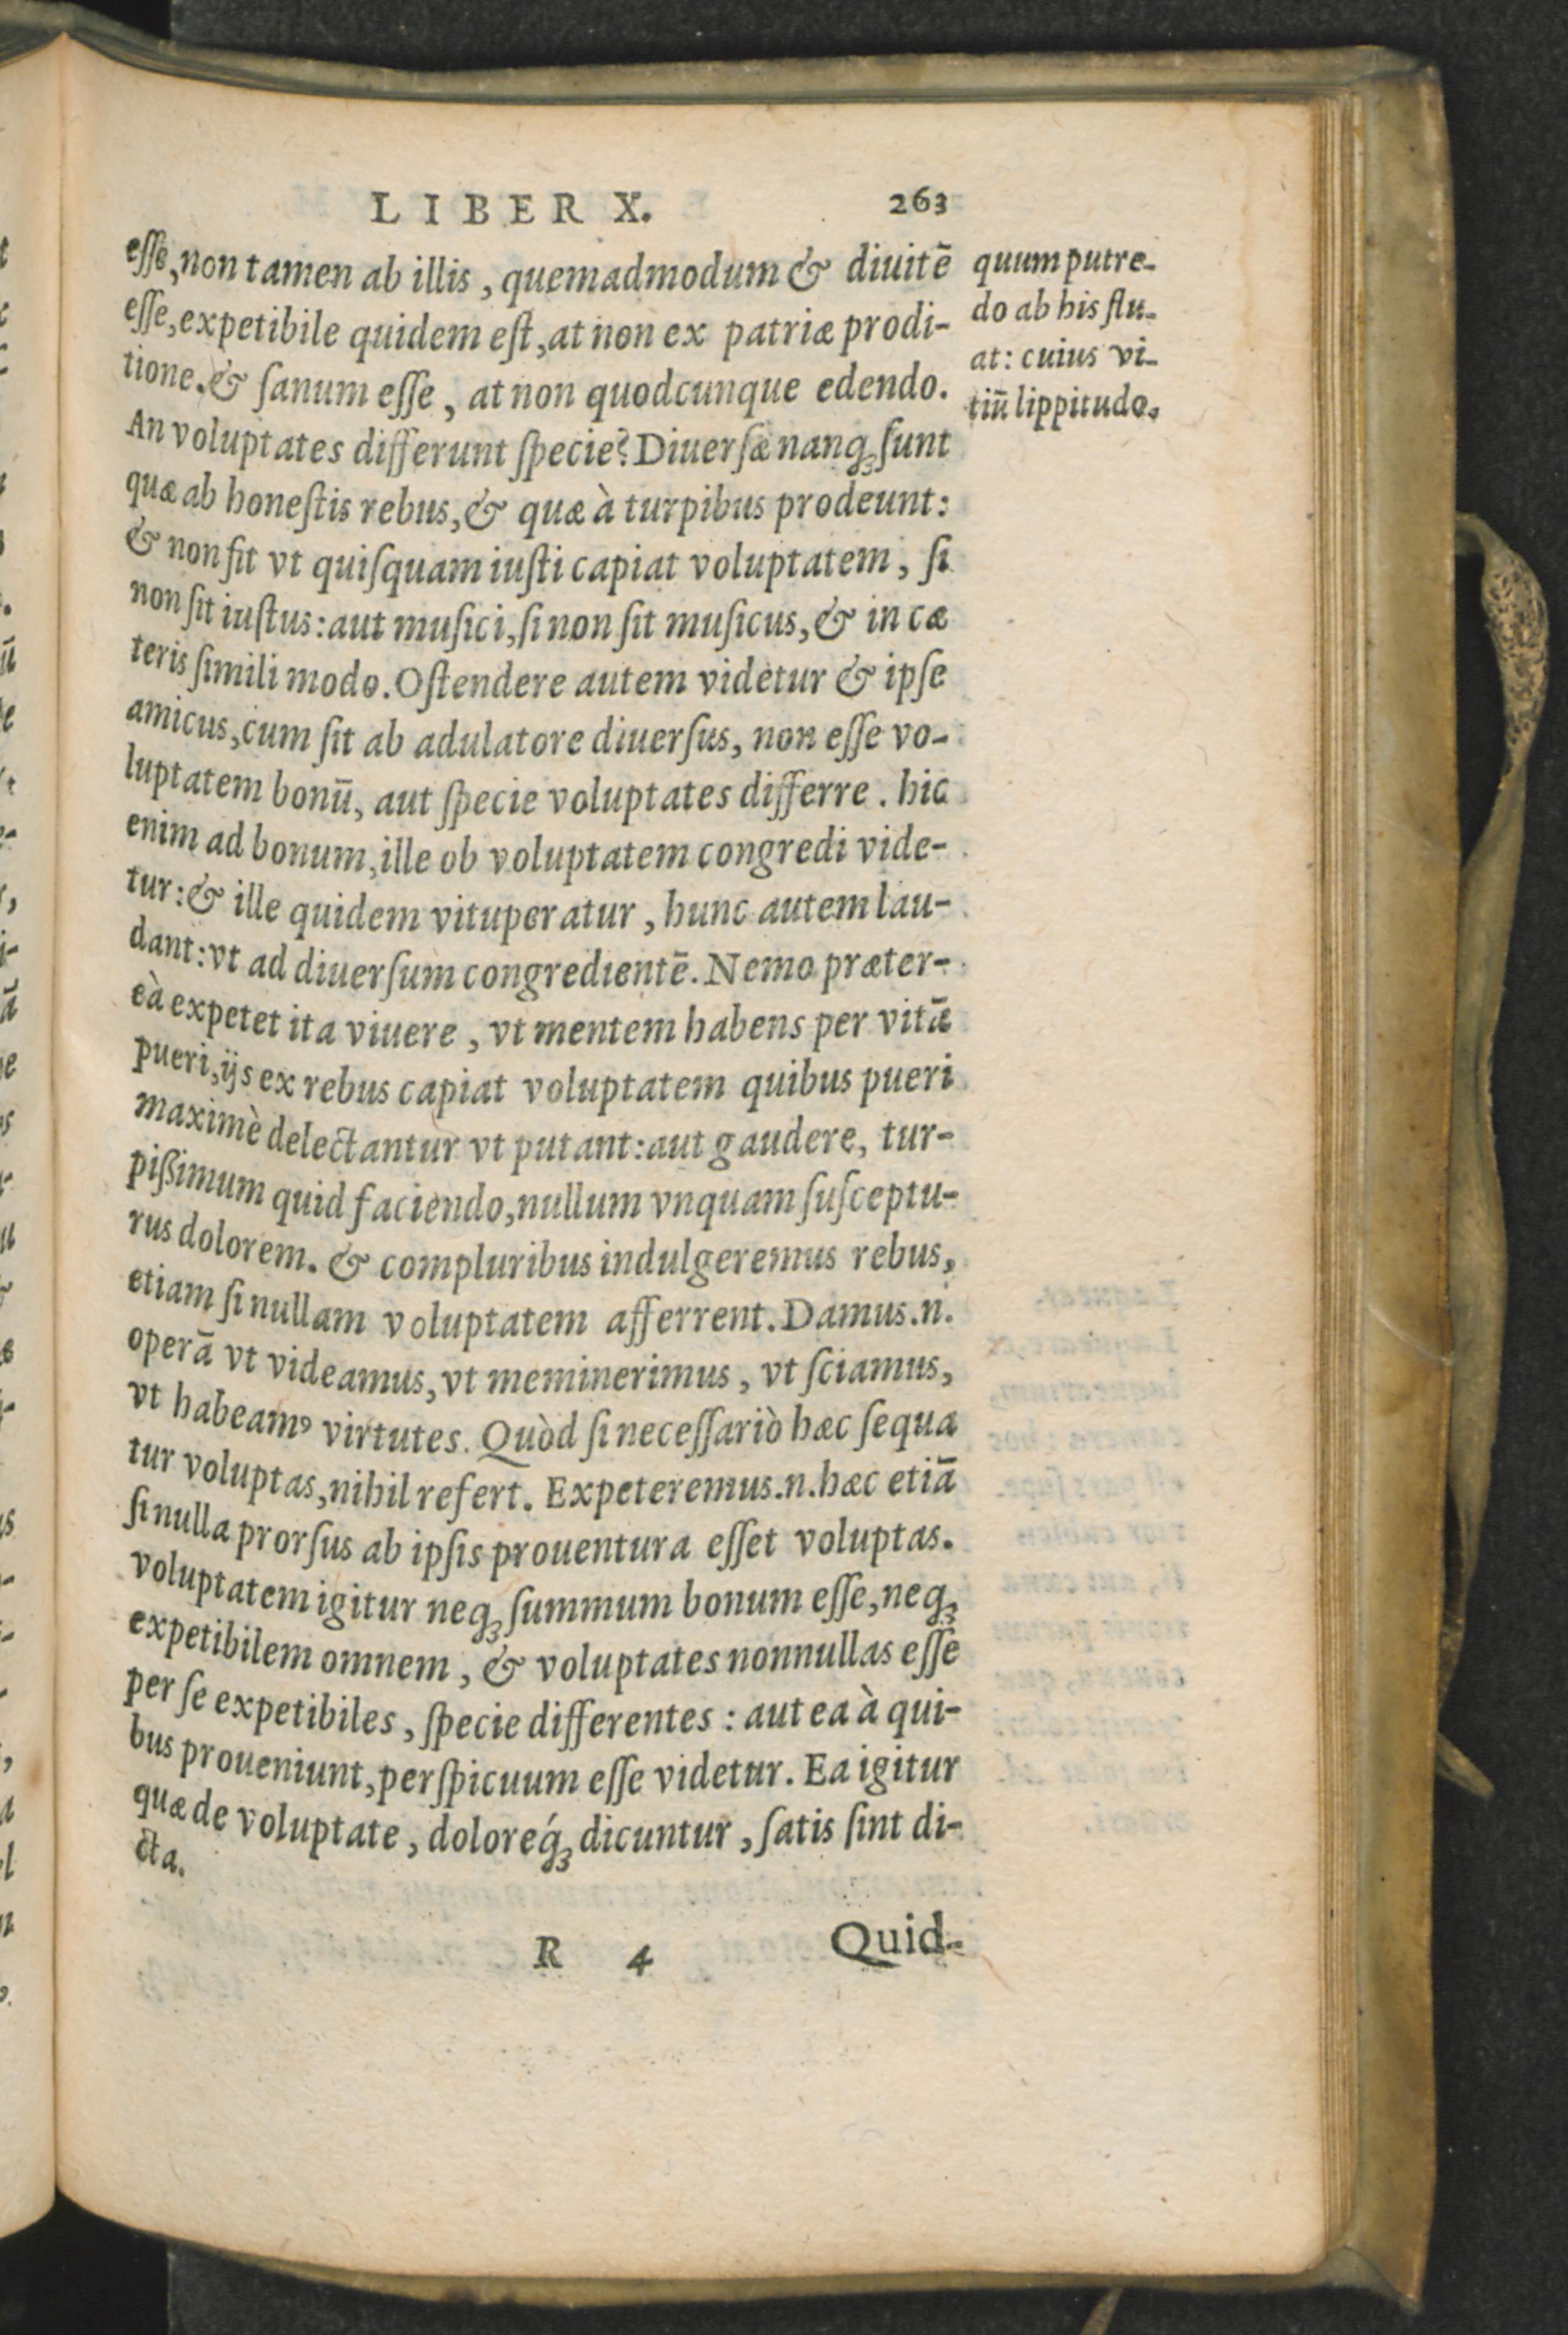 LIBER X. 263
eſſe, non tamen ab illis, quemadmodum & diuitē
eſſe, expetibile quidem eſt, at non ex patriæ prodi-
tione. & ſanum eſſe, at non quodcunque edendo.
An voluptates differunt ſpecie? Diuerſæ nanq; ſunt
quæ ab honeſtis rebus, & quæ à turpibus prodeunt:
& non fit vt quiſquam iuſti capiat voluptatem, ſi
non ſit iuſtus: aut muſici, ſi non ſit muſicus, & in cæ
teris ſimili modo. Oſtendere autem videtur & ipſe
amicus, cum ſit ab adulatore diuerſus, non eſſe vo-
luptatem bonū, aut ſpecie voluptates differre. hic
enim ad bonum, ille ob voluptatem congredi vide-
tur: & ille quidem vituperatur, hunc autem lau-
dant: vt ad diuerſum congredientē. Nemo præter-
eà expetet ita viuere, vt mentem habens per vitā
pueri, ijs ex rebus capiat voluptatem quibus pueri
maximè delectantur vt putant: aut gaudere, tur-
pißimum quid faciendo, nullum vnquam ſuſceptu-
rus dolorem. & compluribus indulgeremus rebus,
etiam ſi nullam voluptatem afferrent. Damus.n.
operā vt videamus, vt meminerimus, vt ſciamus,
vt habeamꝰ virtutes. Quòd ſi neceſſariò hæc ſequa
tur voluptas, nihil refert. Expeteremus.n. hæc etiā
ſi nulla prorſus ab ipſis prouentura eſſet voluptas.
voluptatem igitur neq; ſummum bonum eſſe, neq;
expetibilem omnem, & voluptates nonnullas eſſe
per ſe expetibiles, ſpecie differentes: aut ea à qui-
bus proueniunt, perſpicuum eſſe videtur. Ea igitur
quæ de voluptate, doloreq́; dicuntur, ſatis ſint di-
cta.
R 4 Quid-
quum putre-
do ab his flu-
at: cuius vi-
tiū lippitudo.